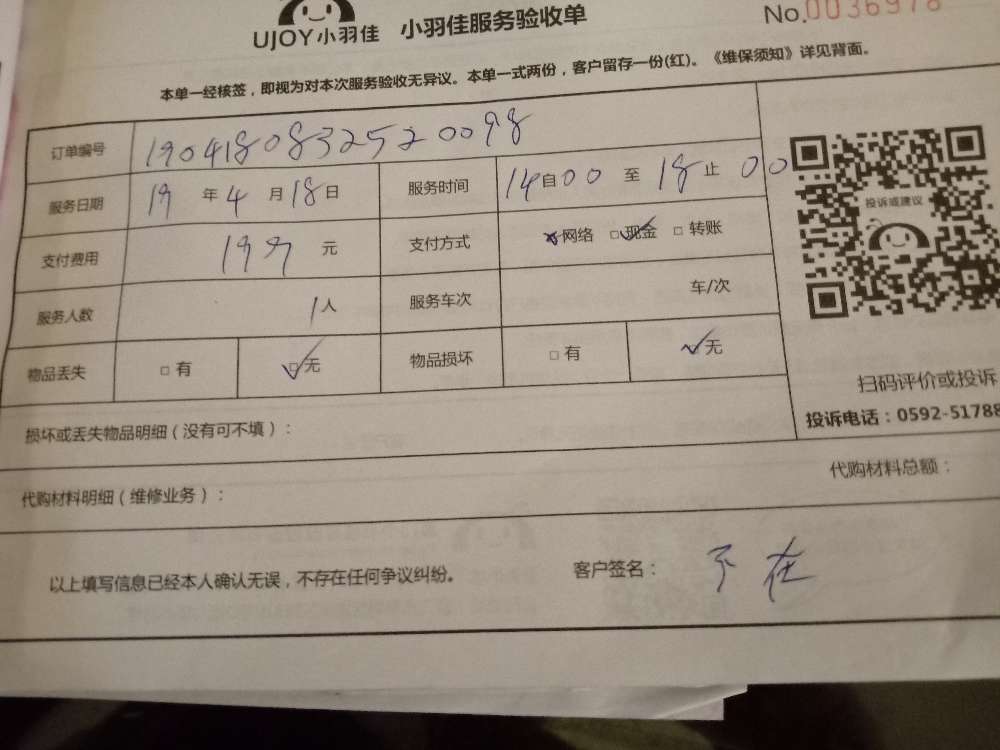 UJOY小羽佳 小羽佳服务验收单 No.0036978
本单一经核签，即视为对本次服务验收无异议。本单一式两份，客户留存一份(红)。《维保须知》详见背面。
订单编号 1904180832520098
服务日期 19 年 4 月 18 日 服务时间 14 自 00 至 18 止 00
支付费用 199 元 支付方式 网络 □现金 □ 转账
服务人数 1人 服务车次 车/次
物品丢失 □ 有 □无 物品损坏 □ 有 □无
投诉或建议
扫码评价或投诉
投诉电话：0592-51788
损坏或丢失物品明细（没有可不填）：
代购材料明细（维修业务）： 代购材料总额：
以上填写信息已经本人确认无误，不存在任何争议纠纷。 客户签名： 不在